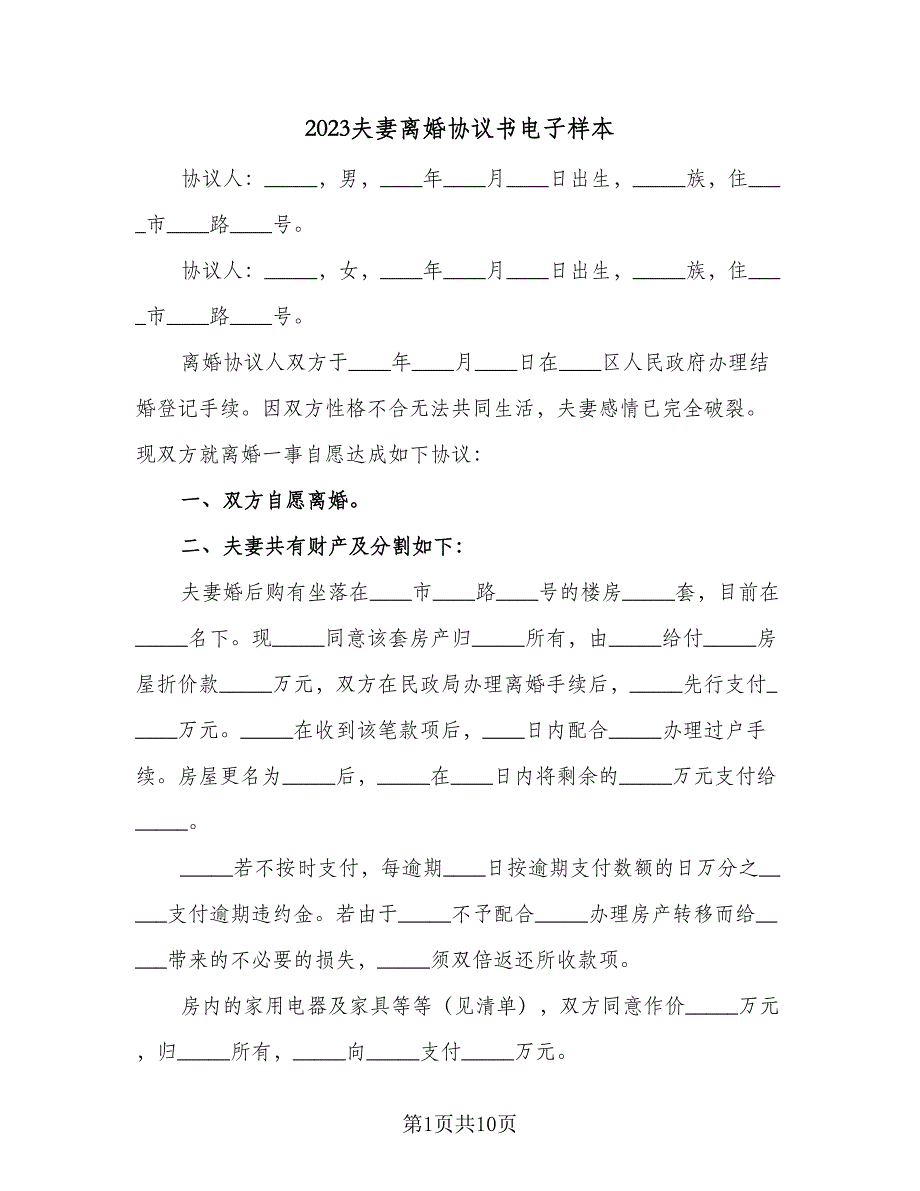 2023夫妻离婚协议书电子样本
协议人：_____，男，____年____月____日出生，_____族，住___
_市____路____号。
协议人：_____，女，____年____月____日出生，_____族，住___
_市____路____号。
离婚协议人双方于____年____月____日在____区人民政府办理结
婚登记手续。因双方性格不合无法共同生活，夫妻感情已完全破裂。
现双方就离婚一事自愿达成如下协议：
一、双方自愿离婚。
二、夫妻共有财产及分割如下：
夫妻婚后购有坐落在____市____路____号的楼房_____套，目前在
_____名下。现_____同意该套房产归_____所有，由_____给付_____房
屋折价款_____万元，双方在民政局办理离婚手续后，_____先行支付_
____万元。_____在收到该笔款项后，____日内配合_____办理过户手
续。房屋更名为_____后，_____在____日内将剩余的_____万元支付给
_____。
_____若不按时支付，每逾期____日按逾期支付数额的日万分之__
___支付逾期违约金。若由于_____不予配合_____办理房产转移而给__
___带来的不必要的损失，_____须双倍返还所收款项。
房内的家用电器及家具等等（见清单），双方同意作价_____万元
，归_____所有，_____向_____支付_____万元。
第1页共10页